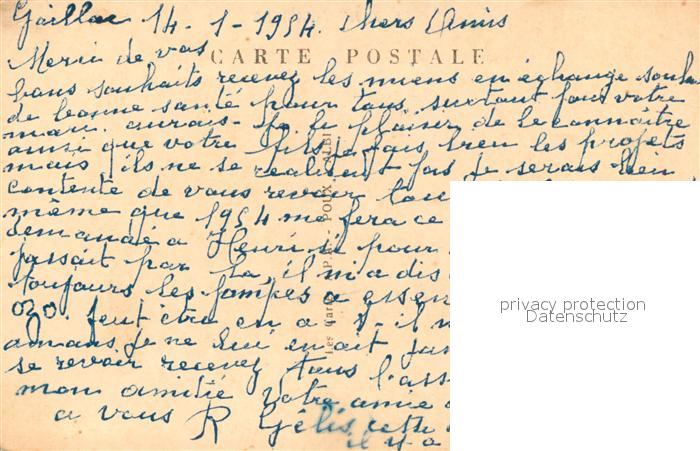 Gaillac 14-1-1954. Chers Amis
Merci de vos
CARTE POSTALE
bons souhaits recevez les miens en échange souhait
de bonne santé pour tous, surtout pour votre
mari. aurais-je le plaisir de le connaître
ainsi que votre fils je fais bien les projets
mais ils ne se réalisent pas je serais bien
contente de vous revoir tous
même que 1954 me fera ce
demandé a Henri si pour
passait par la, il m'a dis
toujours les pompes a essen
ozo. peut être en a-t-il
amans je ne lui en ait
se revoir recevez tous l'ass
mon amitié votre amie
a vous R Gélis cette
il y a
Les Cartes P. - POUX - ALBI
privacy protection
Datenschutz